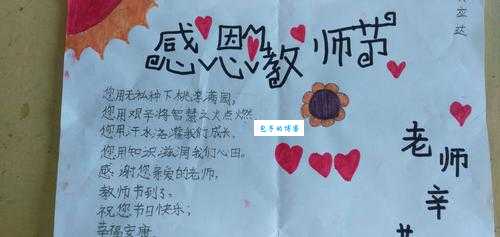 感恩教师节
您用无私种下桃李满园,
您用艰辛将智慧之火点燃
您用汗水浇灌我们成长,
您用知识滋润我们心田。
感谢您亲爱的老师,
教师节到了。
祝您节日快乐;
幸福安康
老师
辛